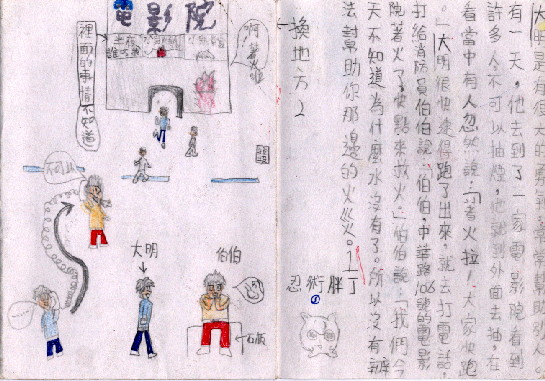 有一天，他去到了一家電影院看到
許多人不可以抽煙，他就到外面去抽，在
看當中有人忽然說：「著火拉！大家快跑
。」大明很快速得跑了出來，就去打電話，
打給消防員伯伯說：伯伯，中華路106號的電影
院著火了，快點來救火，伯伯說：我們今
天不知道為什麼水沒有了。所以沒有辦
法封幫助你那邊的火災。
忍術胖丁
換地方2
電影院
裡面的事情不知道
大明
伯伯